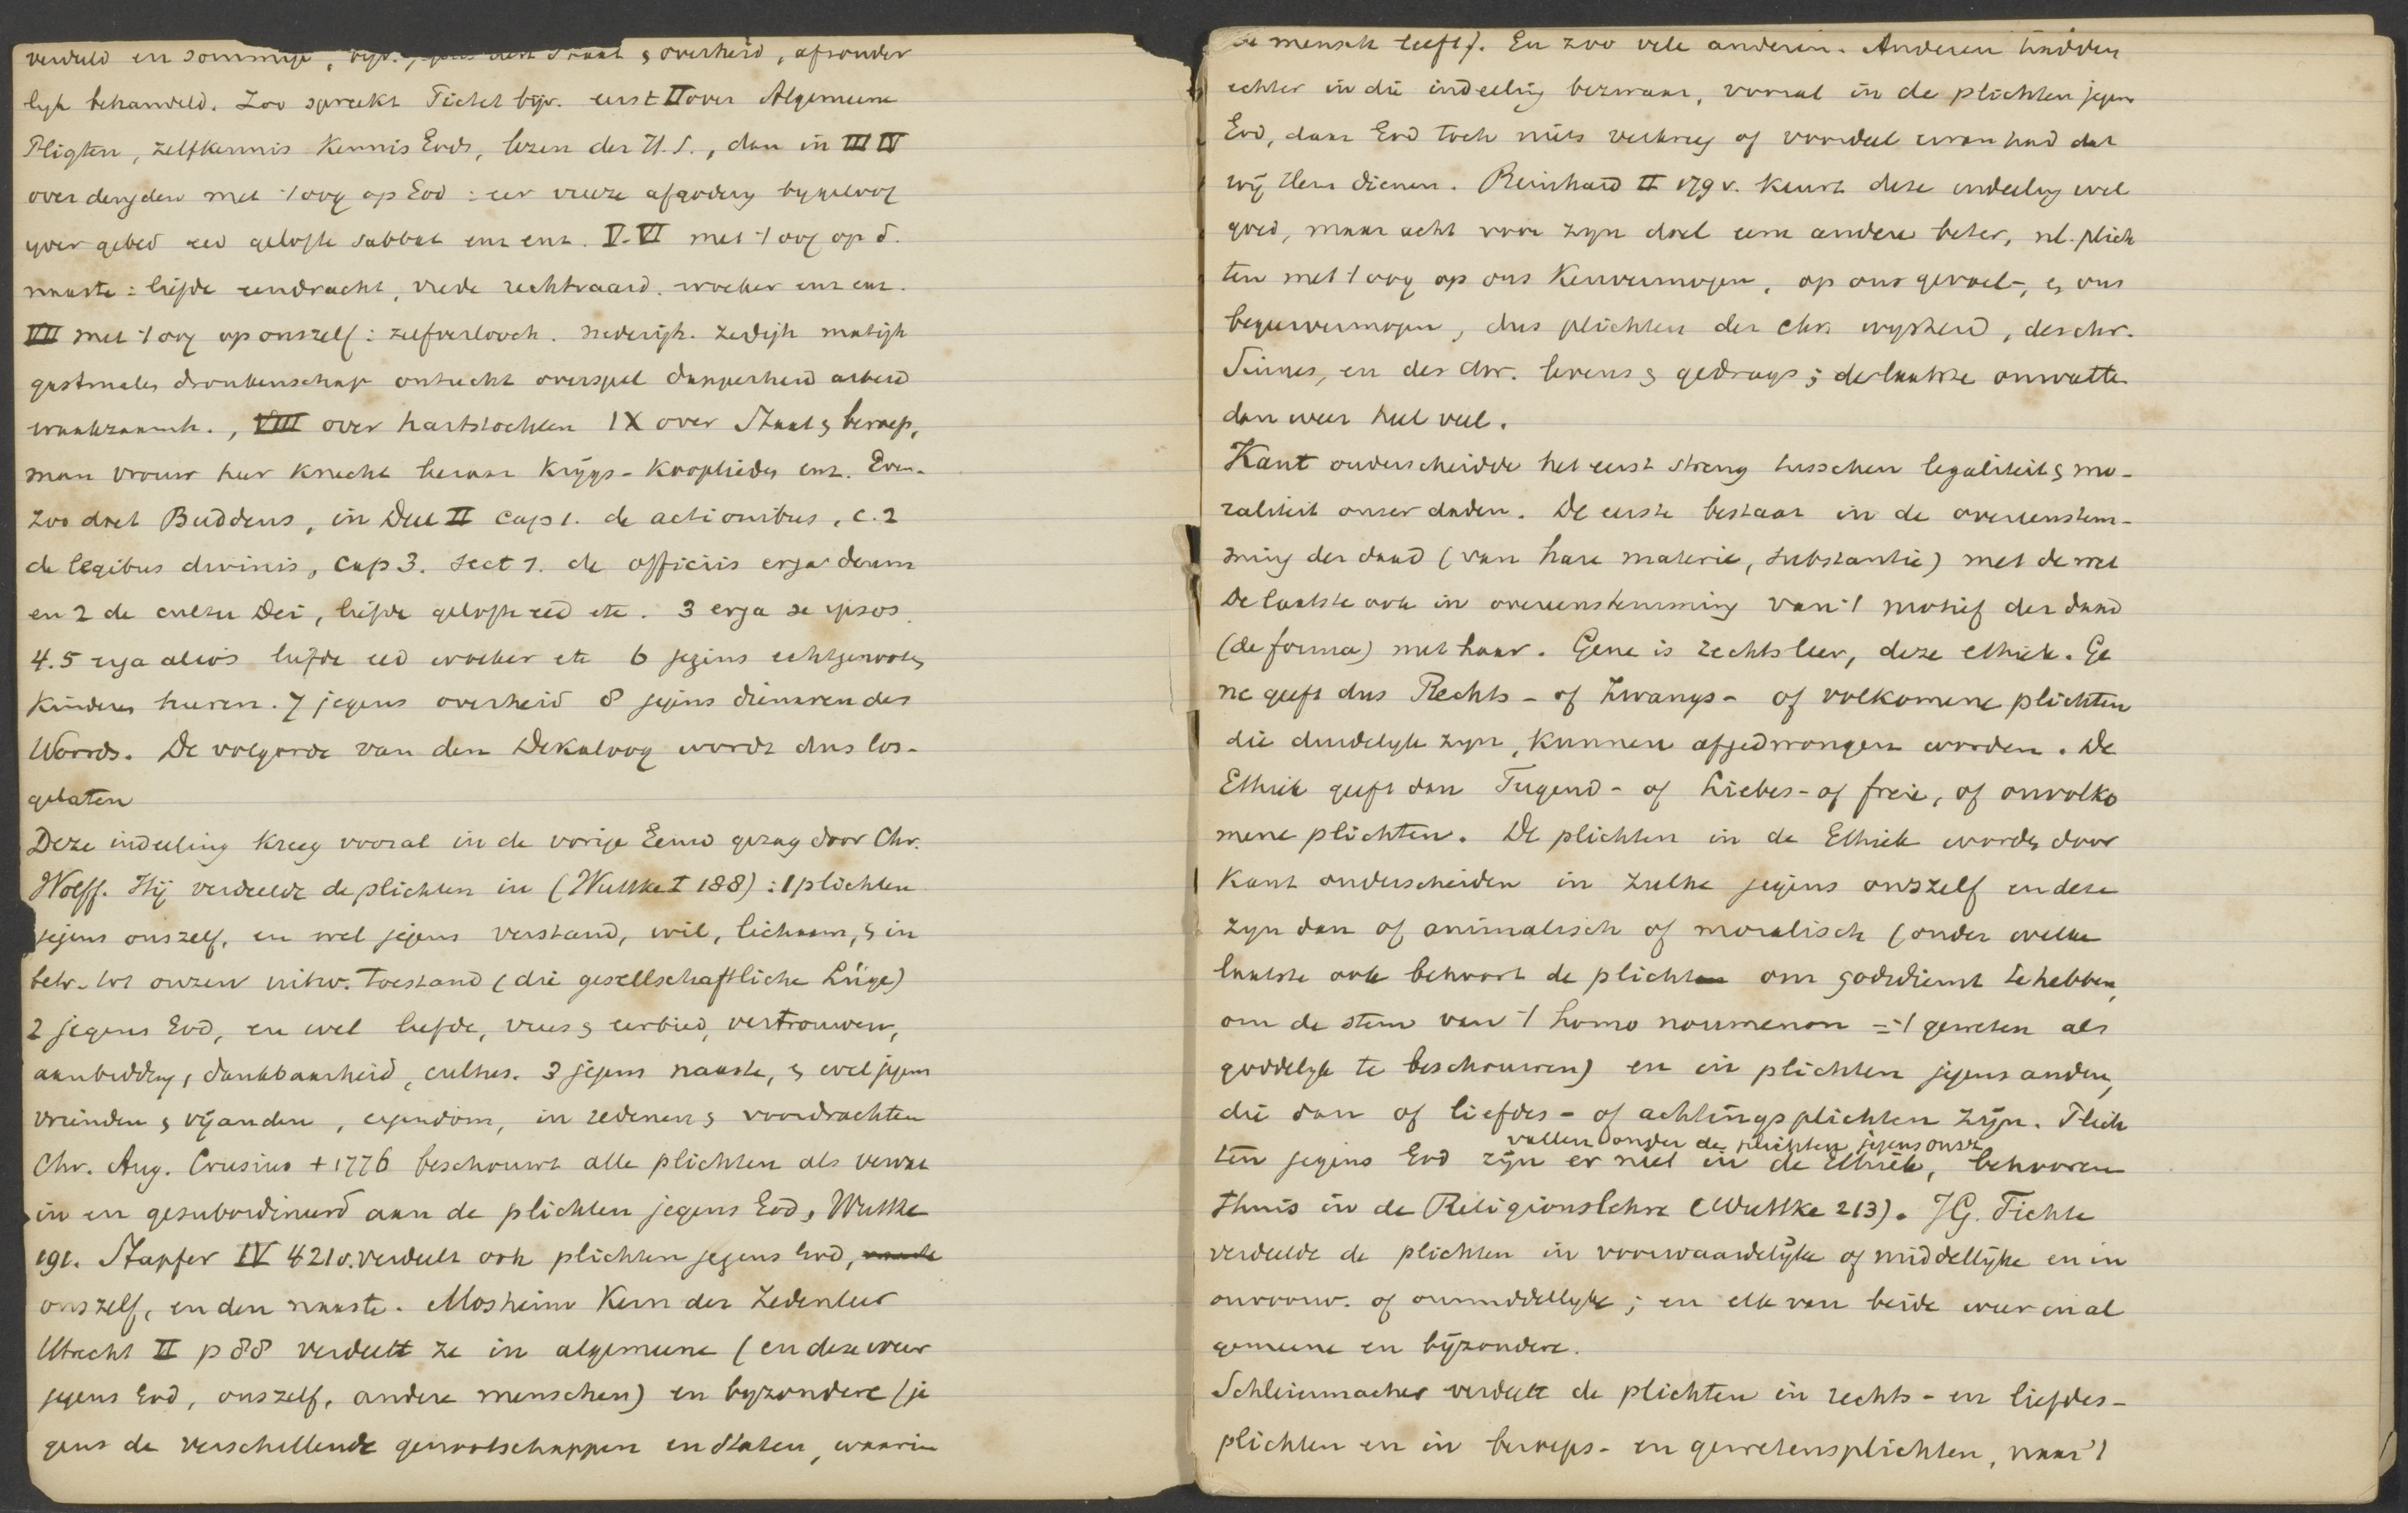 verdeeld en sommige, bijv. jegens den Staat & overheid, afzonder
lijk behandeld. Zoo spreekt Pictet bijv. eerst II over Algemeene
Pligten, zelfkennis Kennis Gods, lezen der H.S., dan in III IV
over deugden met 't oog op God : eer vreeze afgodery bygeloof
yver gebed eed gelofte sabbat enz enz. V-VI met 't oog op d.
naaste : liefde eendracht, vrede rechtvaard. woeker enz enz.
VII met 't oog op onszelf : zelfverlooch. nederigh. zedigh matigh
gastmalen dronkenschap ontucht overspel dapperheid arbeid
waakzaamh., VIII over hartstochten IX over Staat & beroep,
man vrouw heer knecht leeraar krijgs- kooplieden enz. Even-
zoo doet Buddeus, in Deel II cap 1. de actionibus, c. 2
de legibus divinis, cap 3. sect 1. de officiis erga deum
en 2 de cultu Dei, liefde gelofte eed etc. 3 erga se ipsos.
4.5 erga alios liefde eed woeker etc 6 jegens echtgenooten
kinderen heeren. 7 jegens overheid 8 jegens dienaren des
Woords. De volgorde van den Dekaloog wordt dus los-
gelaten
Deze indeeling kreeg vooral in de vorige Eeuw gezag door Chr.
Wolff. Hij verdeelde de plichten in (Wuttke I 188) : 1 plichten
jegens onszelf, en wel jegens verstand, wil, lichaam, & in
betr. tot onzen uitw. toestand (die gesellschaftliche Lüge)
2 jegens God, en wel liefde, vrees & eerbied, vertrouwen,
aanbidding, dankbaarheid, cultus. 3 jegens naaste, & wel jegens
vrienden & vijanden, eigendom, in redenen & voordrachten
Chr. Aug. Crusius + 1776 beschouwt alle plichten als vervat
in en gesubordineerd aan de plichten jegens God, Wuttke
191. Stapfer IV 421 v. verdeelt ook plichten jegens God, naaste
onszelf, en den naaste. Mosheim Kern der Zedenleer
Utrecht II p 88 verdeelt ze in algemeene (en deze weer
jegens God, onszelf, andere menschen) en byzondere (je
gens de verschillende genootschappen en staten, waarin
de mensch leeft). En zoo vele anderen. Anderen hadden
echter in die indeeling bezwaar, vooral in de plichten jegens
God, daar God toch niets verkreeg of voordeel ervan had dat
wij Hem dienen. Reinhard II 179 v. keurt deze indeeling wel
goed, maar acht voor zyn doel eene andere beter, nl. plich
ten met 't oog op ons Kenvermogen, op ons gevoel-, & ons
begeervermogen, dus plichten der chr. wysheid, des chr.
Sinnes, en des chr. levens & gedrags ; de laatste omvatten
dan weer heel veel.
Kant onderscheidde het eerst streng tusschen legaliteit & mo-
raliteit onser daden. De eerste bestaat in de overeenstem-
ming der daad (van hare materie, substantie) met de wet
De laatste ook in overeenstemming van 't motief der daad
(de forma) met haar. Gene is rechtsleer, deze ethiek. Ge
ne geeft dus Rechts- of Zwangs- of volkomene plichten
die duidelyk zyn, kunnen afgedwongen worden. De
Ethiek geeft dan Tugend- of Liebes- of freie, of onvolko
mene plichten. De plichten in de Ethiek worden door
Kant onderscheiden in zulke jegens onszelf en deze
zyn dan of animalisch of moralisch (onder welke
laatste ook behoort de plicht om godsdienst te hebben,
om de stem van 't homo noumenon = 't geweten als
goddelyk te beschouwen) en in plichten jegens andere,
die dan of liefdes- of achtingsplichten zijn. Plich
vallen onder de plichten jegens onsz
ten jegens God zijn er niet in de Ethiek, behooren
thuis in de Religionslehre (Wuttke 213). J.G. Fichte
verdeelde de plichten in voorwaardelijke of middellijke en in
onvoorw. of onmiddellyke ; en elk van beide weer in al
gemeene en bijzondere.
Schleiermacher verdeelt de plichten in rechts- en liefdes-
plichten en in beroeps- en gewetensplichten, naar 't